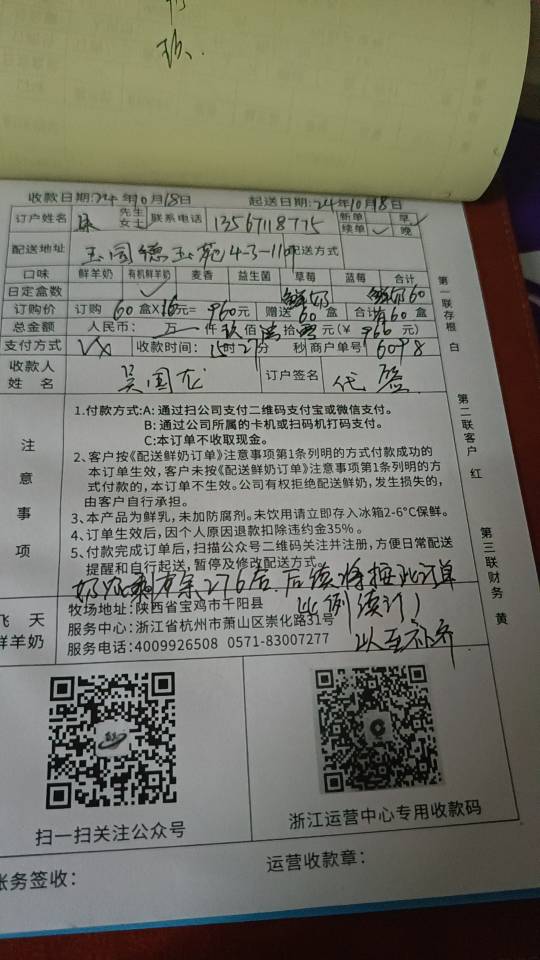 玖.
收款日期:24年10月18日 起送日期:24年10月18日
订户姓名 先生 女士 联系电话 13567118775 新单 续单✓ 早✓ 晚
配送地址 玉园德玉苑4-3-1101 配送方式
口味 鲜羊奶 有机鲜羊奶 麦香 益生菌 草莓 蓝莓 合计
日定盒数 ✓ 鲜奶 鲜奶60
订购价 订购60盒X16元=960元 赠送60盒 合计 60盒
总金额 人民币: 万 仟玖佰 拾零元(¥ 960元)
支付方式 VX 收款时间:15时27分 秒 商户单号 6098
收款人姓名 吴国龙 订户签名 代签
第一联存根 白
第二联客户 红
第三联财务 黄
注意事项
1.付款方式:A: 通过扫公司支付二维码支付宝或微信支付。
B: 通过公司所属的卡机或扫码机打码支付。
C:本订单不收取现金。
2、客户按《配送鲜奶订单》注意事项第1条列明的方式付款成功的
本订单生效，客户未按《配送鲜奶订单》注意事项第1条列明的方
式付款的，本订单不生效。公司有权拒绝配送鲜奶，发生损失的，
由客户自行承担。
3、本产品为鲜乳，未加防腐剂。未饮用请立即存入冰箱2-6°C保鲜。
4、订单生效后，因个人原因退款扣除违约金35%。
5、付款完成订单后，扫描公众号二维码关注并注册，方便日常配送
提醒和自行起送，暂停及修改配送方式。
余276店.后续将按此订单
此例续订)
以至补齐
飞天
鲜羊奶
牧场地址:陕西省宝鸡市千阳县
服务中心:浙江省杭州市萧山区崇化路31号
服务电话:4009926508 0571-83007277
扫一扫关注公众号
浙江运营中心专用收款码
账务签收：
运营收款章：